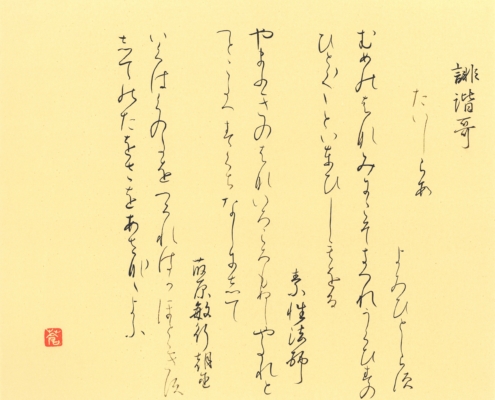 誹諧哥
たいしらす
よみひとしらす
むめのはなみにこそきつれうくひすの
ひとく〱といとひしもをる
素性法師
やまふきのはないろころもぬしやたれと
へとこたへすくちなしにして
藤原敏行朝臣
いくはくのたをつくれはかほとゝきす
してのたをさをあさな〱よふ